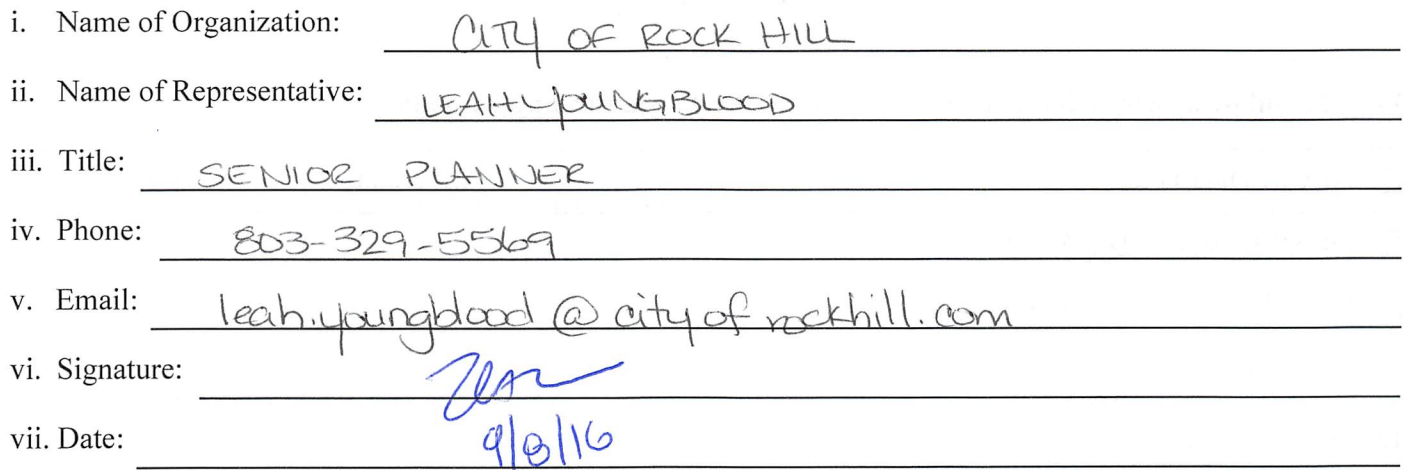 i. Name of Organization: CITY OF ROCK HILL
ii. Name of Representative: LEAH YOUNGBLOOD
iii. Title: SENIOR PLANNER
iv. Phone: 803-329-5569
v. Email: leah.youngblood@cityofrockhill.com
vi. Signature:
vii. Date: 9/8/16